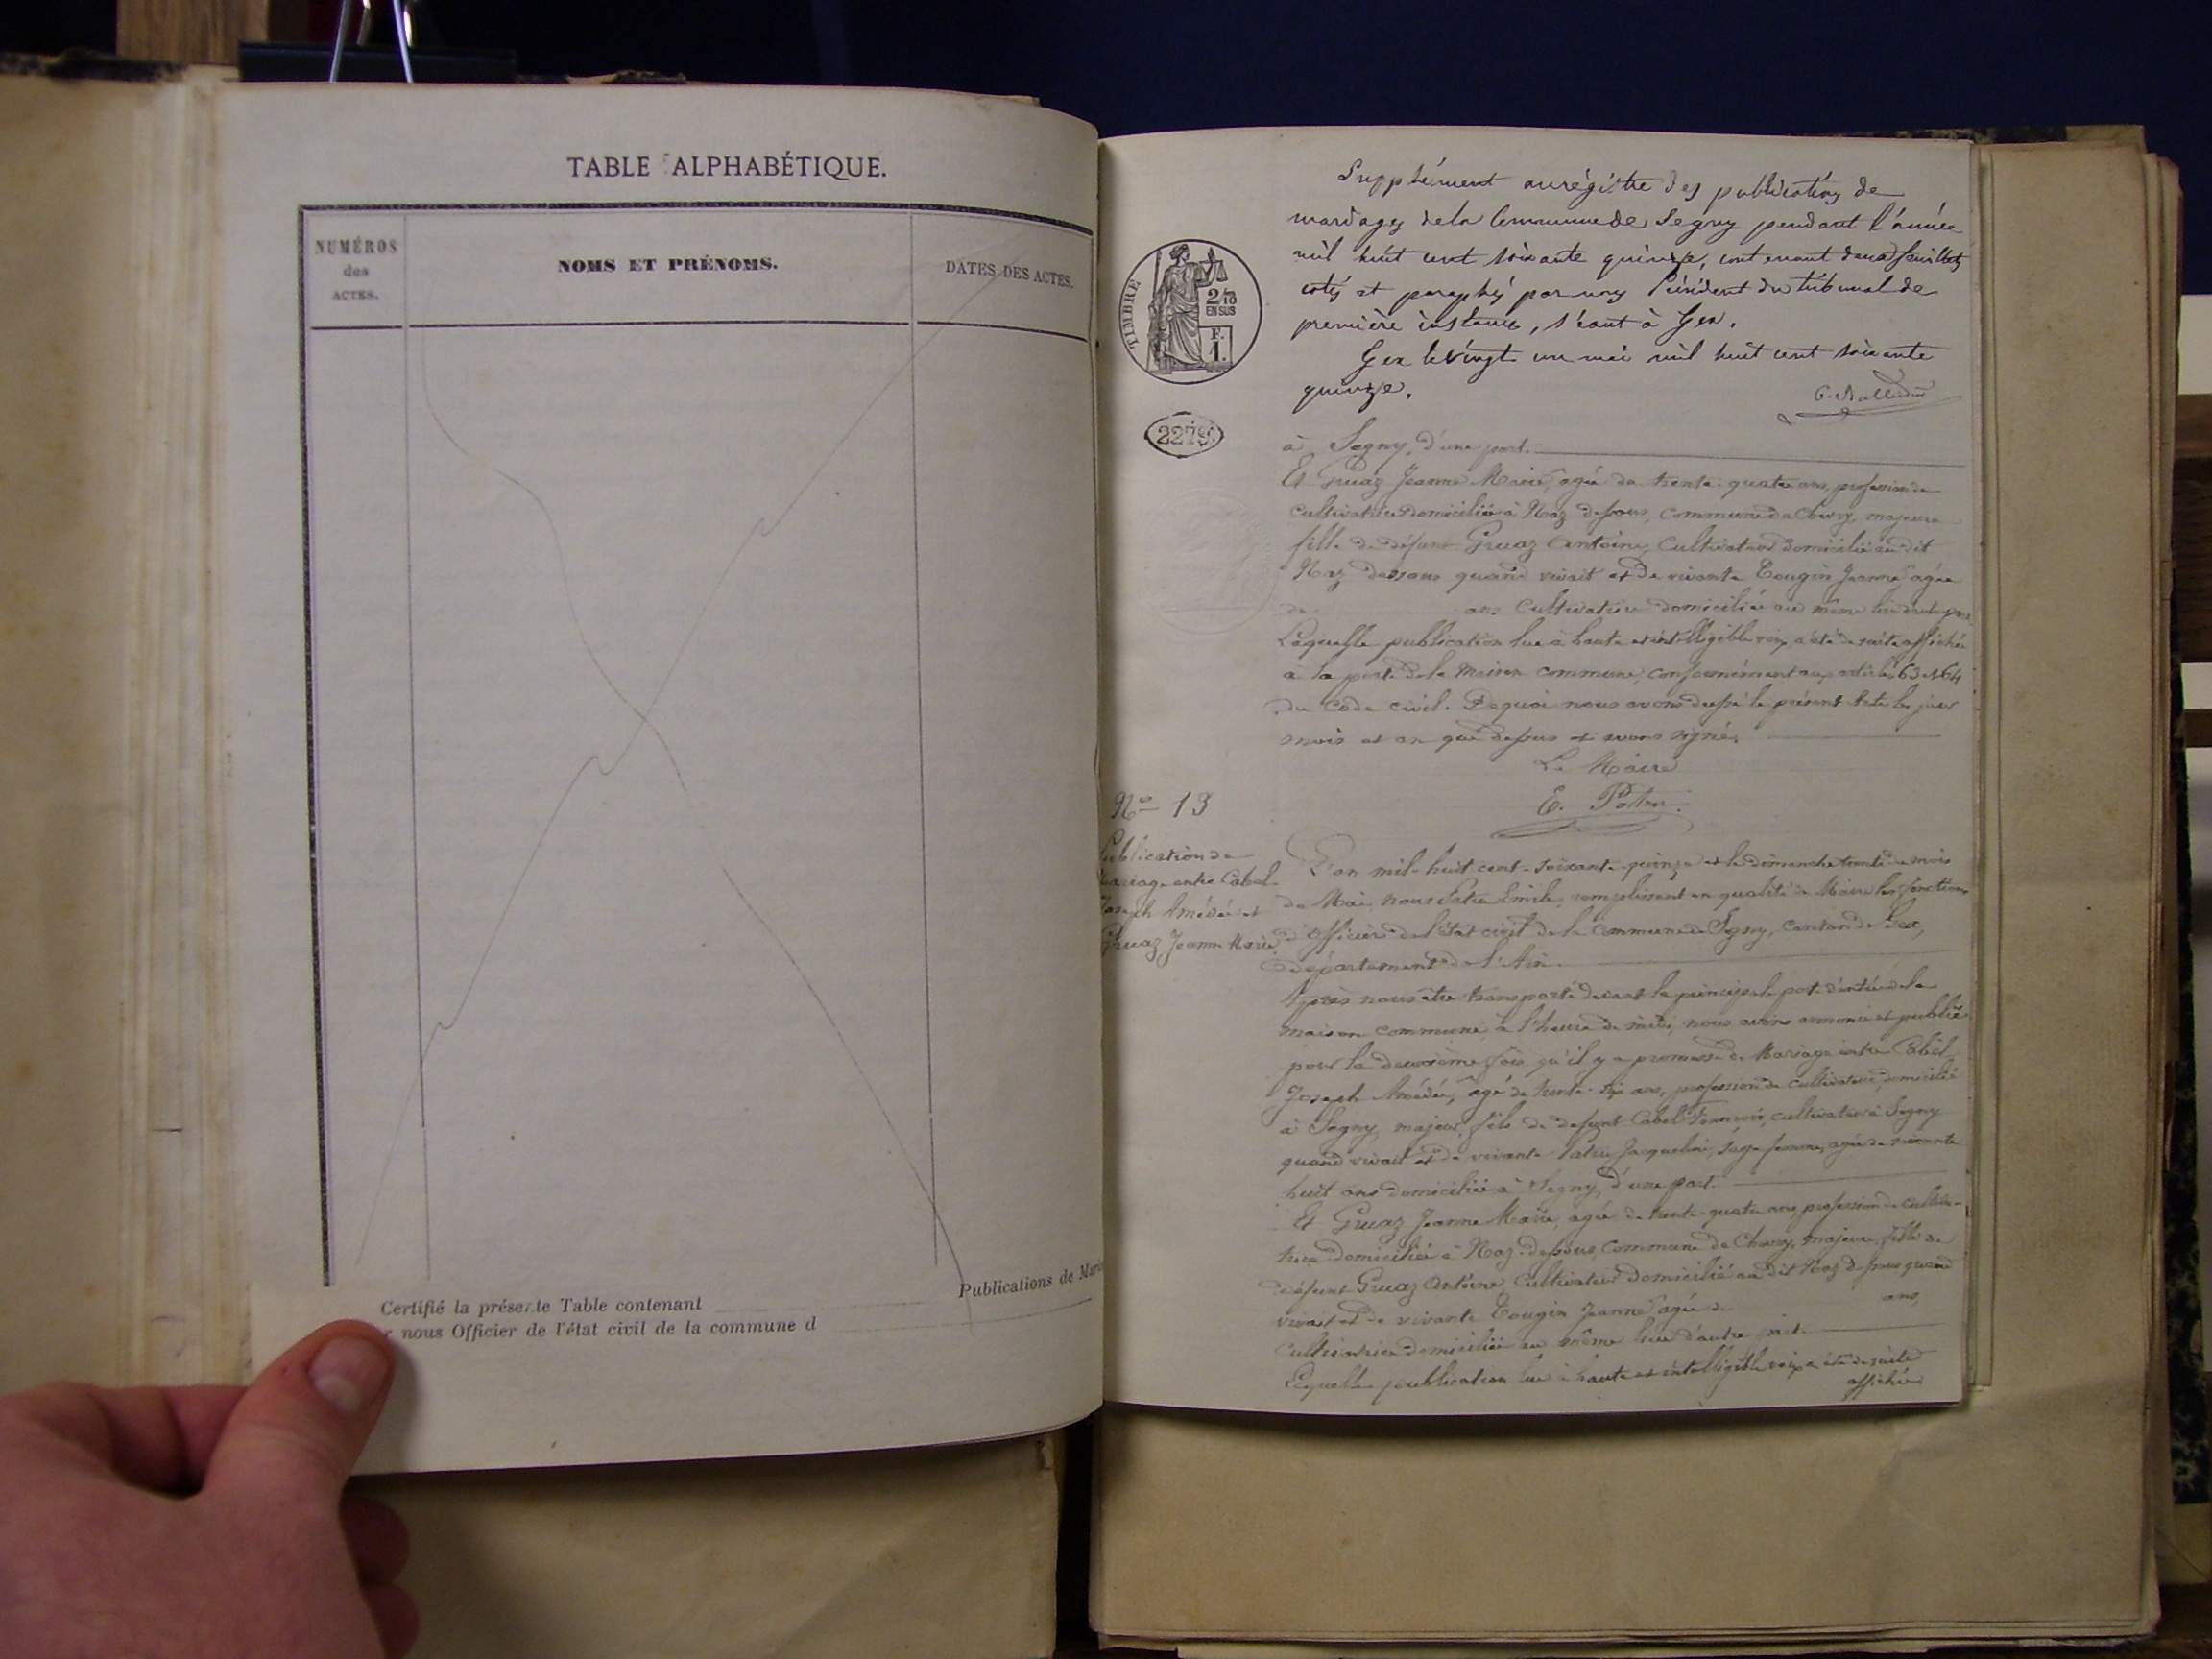 TABLE ALPHABÉTIQUE.
NUMÉROS
des
ACTES.
NOMS ET PRÉNOMS.
DATES DES ACTES.
Certifié la présente Table contenant
Publications de Mar
r nous Officier de l'état civil de la commune d
TIMBRE
2/10
EN SUS
F.
1.
2279
Supplément au régistre des publications de
mariages de la Commune de Segny pendant l'année
mil huit cent soixante quinze, contenant deux feuillets
cotés et paraphés par nous Président du tribunal de
première instance, séant à Gex.
Gex le vingt un mai mil huit cent soixante
quinze.
à Segny, d'une part.
Et Gruaz Jeanne Marie, agée de trente-quatre ans, profession de
Cultivatrice domiciliée à Naz dessous, commune de Chevry, majeure
fille de défunt Gruaz Antoine, Cultivateur domicilié au dit
Naz dessous quand vivait et de vivante Tougin Jeanne agée
de ans Cultivatrice domiciliée au même lieu d'autre part
Laquelle publication lue à haute et intelligible voix a été de suite affichée
à la porte de la Maison commune, conformément aux articles 63 et 64
du Code civil. De quoi nous avons dressé le présent acte les jour
mois et an que dessus et avons signé.
Le Maire
E. Patru.
No 13
Publication de
Mariage entre Cabel
Joseph Amédée et
Gruaz Jeanne Marie
L'an mil-huit cent-soixante-quinze et le dimanche trente du mois
de Mai, nous Patru Emile, remplissant en qualité de Maire les fonctions
d'Officier de l'état civil de la Commune de Segny, Canton de Gex,
département de l'Ain.
Après nous être transporté devant la principale porte d'entrée de la
maison commune à l'heure de midi, nous avons annoncé et publié
pour la deuxième fois qu'il y a promesse de Mariage entre Cabel
Joseph Amédée, agé de trente-six ans, profession de cultivateur, domicilié
à Segny, majeur, fils de défunt Cabel François, cultivateur à Segny
quand vivait et de vivante Patru Jacqueline, sage femme, agée de soixante
huit ans domiciliée à Segny d'une part.
Et Gruaz Jeanne Marie, agée de trente-quatre ans, profession de cultiva-
trice domiciliée à Naz-dessous commune de Chevry, majeure, fille de
défunt Gruaz Antoine, Cultivateur domicilié au dit Naz dessous quand
vivait et de vivante Tougin Jeanne agée de ans,
Cultivatrice domiciliée au même lieu d'autre part.
Laquelle publication lue à haute et intelligible voix a été de suite
affichée